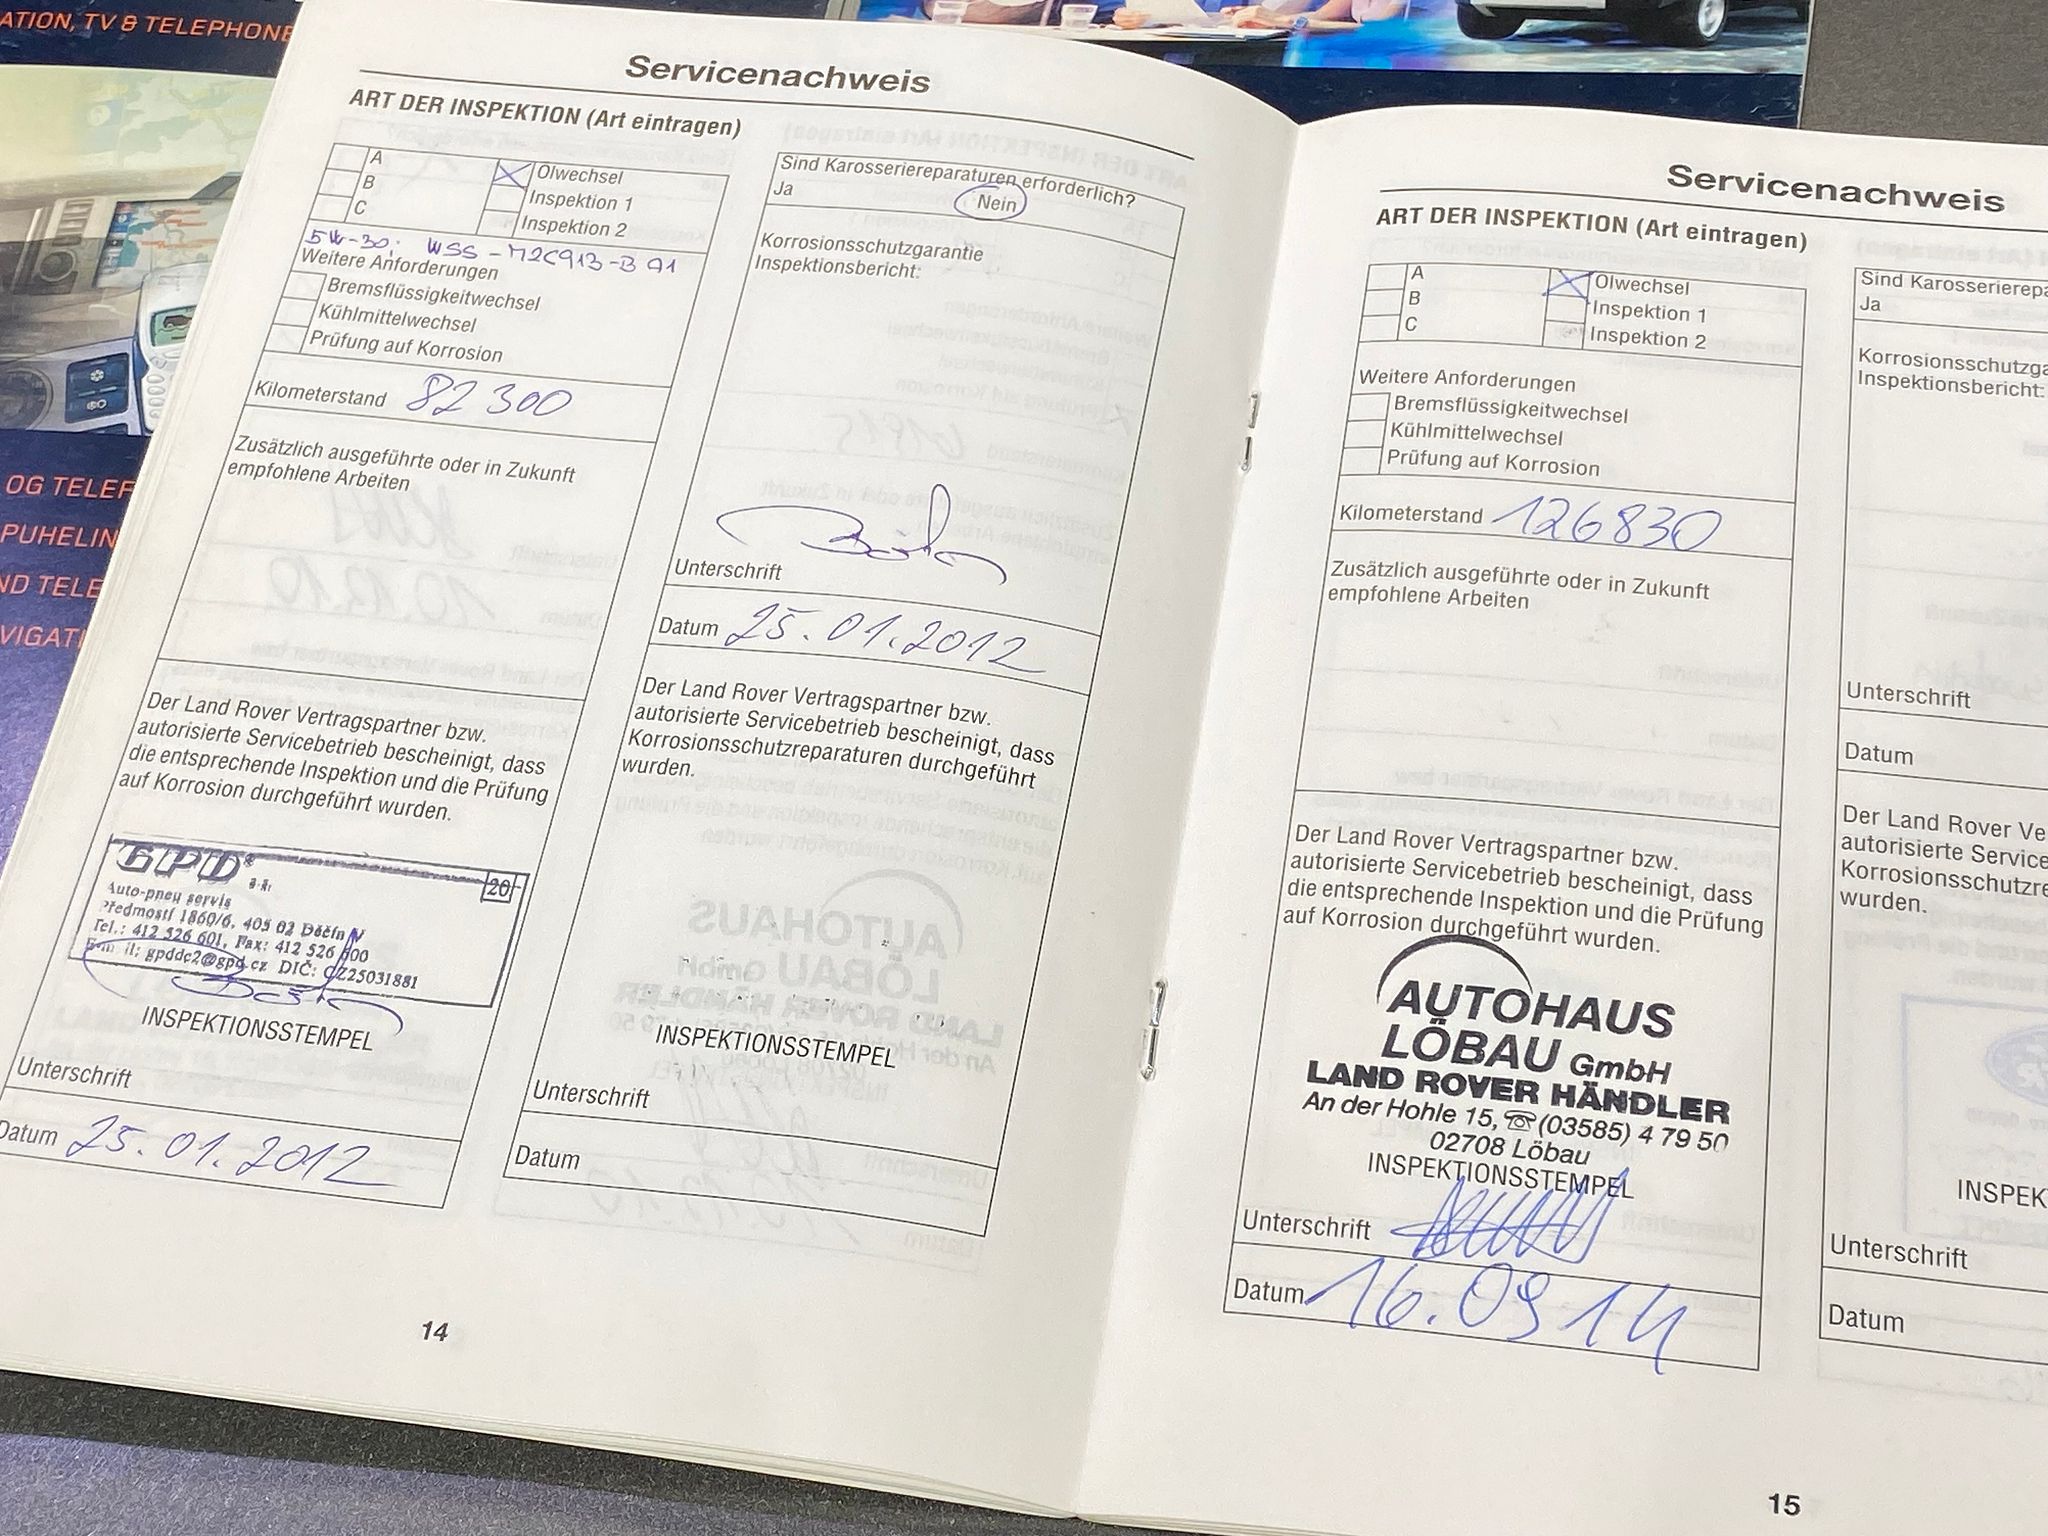 ATION, TV & TELEPHONE
OG TELEF
PUHELIN
ND TELE
VIGATI
Servicenachweis
ART DER INSPEKTION (Art eintragen)
A
B
C
Ölwechsel
Inspektion 1
Inspektion 2
5W-30; WSS-M2C913-B A1
Weitere Anforderungen
Bremsflüssigkeitwechsel
Kühlmittelwechsel
Prüfung auf Korrosion
Kilometerstand 82 300
Zusätzlich ausgeführte oder in Zukunft
empfohlene Arbeiten
Der Land Rover Vertragspartner bzw.
autorisierte Servicebetrieb bescheinigt, dass
die entsprechende Inspektion und die Prüfung
auf Korrosion durchgeführt wurden.
GPD
20
Auto-pneu servis
Předmostí 1860/6, 405 02 Děčín
Tel.: 412 526 601, Fax: 412 526 600
gpddc2@gpd.cz DIČ: CZ25031881
INSPEKTIONSSTEMPEL
Unterschrift
Datum 25.01.2012
Sind Karosseriereparaturen erforderlich?
Ja
Nein
Korrosionsschutzgarantie
Inspektionsbericht:
Unterschrift
Datum 25.01.2012
Der Land Rover Vertragspartner bzw.
autorisierte Servicebetrieb bescheinigt, dass
Korrosionsschutzreparaturen durchgeführt
wurden.
INSPEKTIONSSTEMPEL
Unterschrift
Datum
14
Servicenachweis
ART DER INSPEKTION (Art eintragen)
A
B
C
Ölwechsel
Inspektion 1
Inspektion 2
Weitere Anforderungen
Bremsflüssigkeitwechsel
Kühlmittelwechsel
Prüfung auf Korrosion
Kilometerstand 126830
Zusätzlich ausgeführte oder in Zukunft
empfohlene Arbeiten
Der Land Rover Vertragspartner bzw.
autorisierte Servicebetrieb bescheinigt, dass
die entsprechende Inspektion und die Prüfung
auf Korrosion durchgeführt wurden.
AUTOHAUS
LÖBAU GmbH
LAND ROVER HÄNDLER
An der Hohle 15, ☏ (03585) 4 79 50
02708 Löbau
INSPEKTIONSSTEMPEL
Unterschrift
Datum 16.09 14
Sind Karosserierepa
Ja
Korrosionsschutzga
Inspektionsbericht:
Unterschrift
Datum
Der Land Rover Ve
autorisierte Service
Korrosionsschutzre
wurden.
INSPEK
Unterschrift
Datum
15